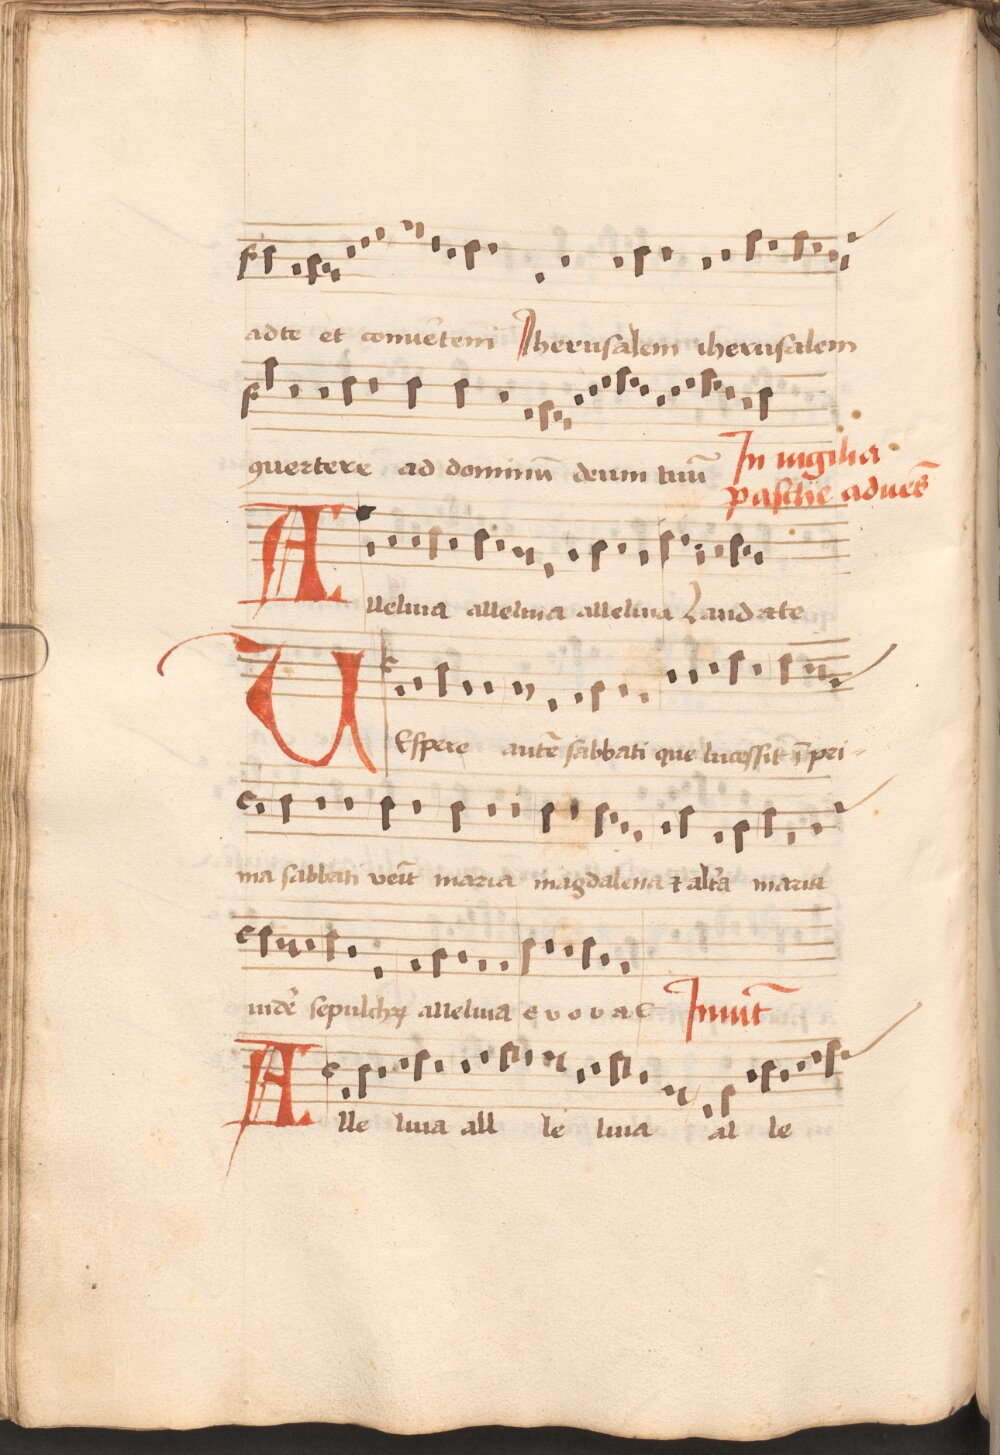 adte et conuẽteni Jherusalem iherusalem
ꝯuertere ad dominũ deum tuũ In uigilia
pasche aduesꝑ̃
Alleluia alleluia alleluia Laudate
VEspere autẽ sabbati que lucessit ĩ pri-
ma sabbati venit maria magdalena ⁊ alt̃a maria
uidẽ sepulchꝝ alleluia e v o v a e Inuit̃
Alle luia all le luia al le